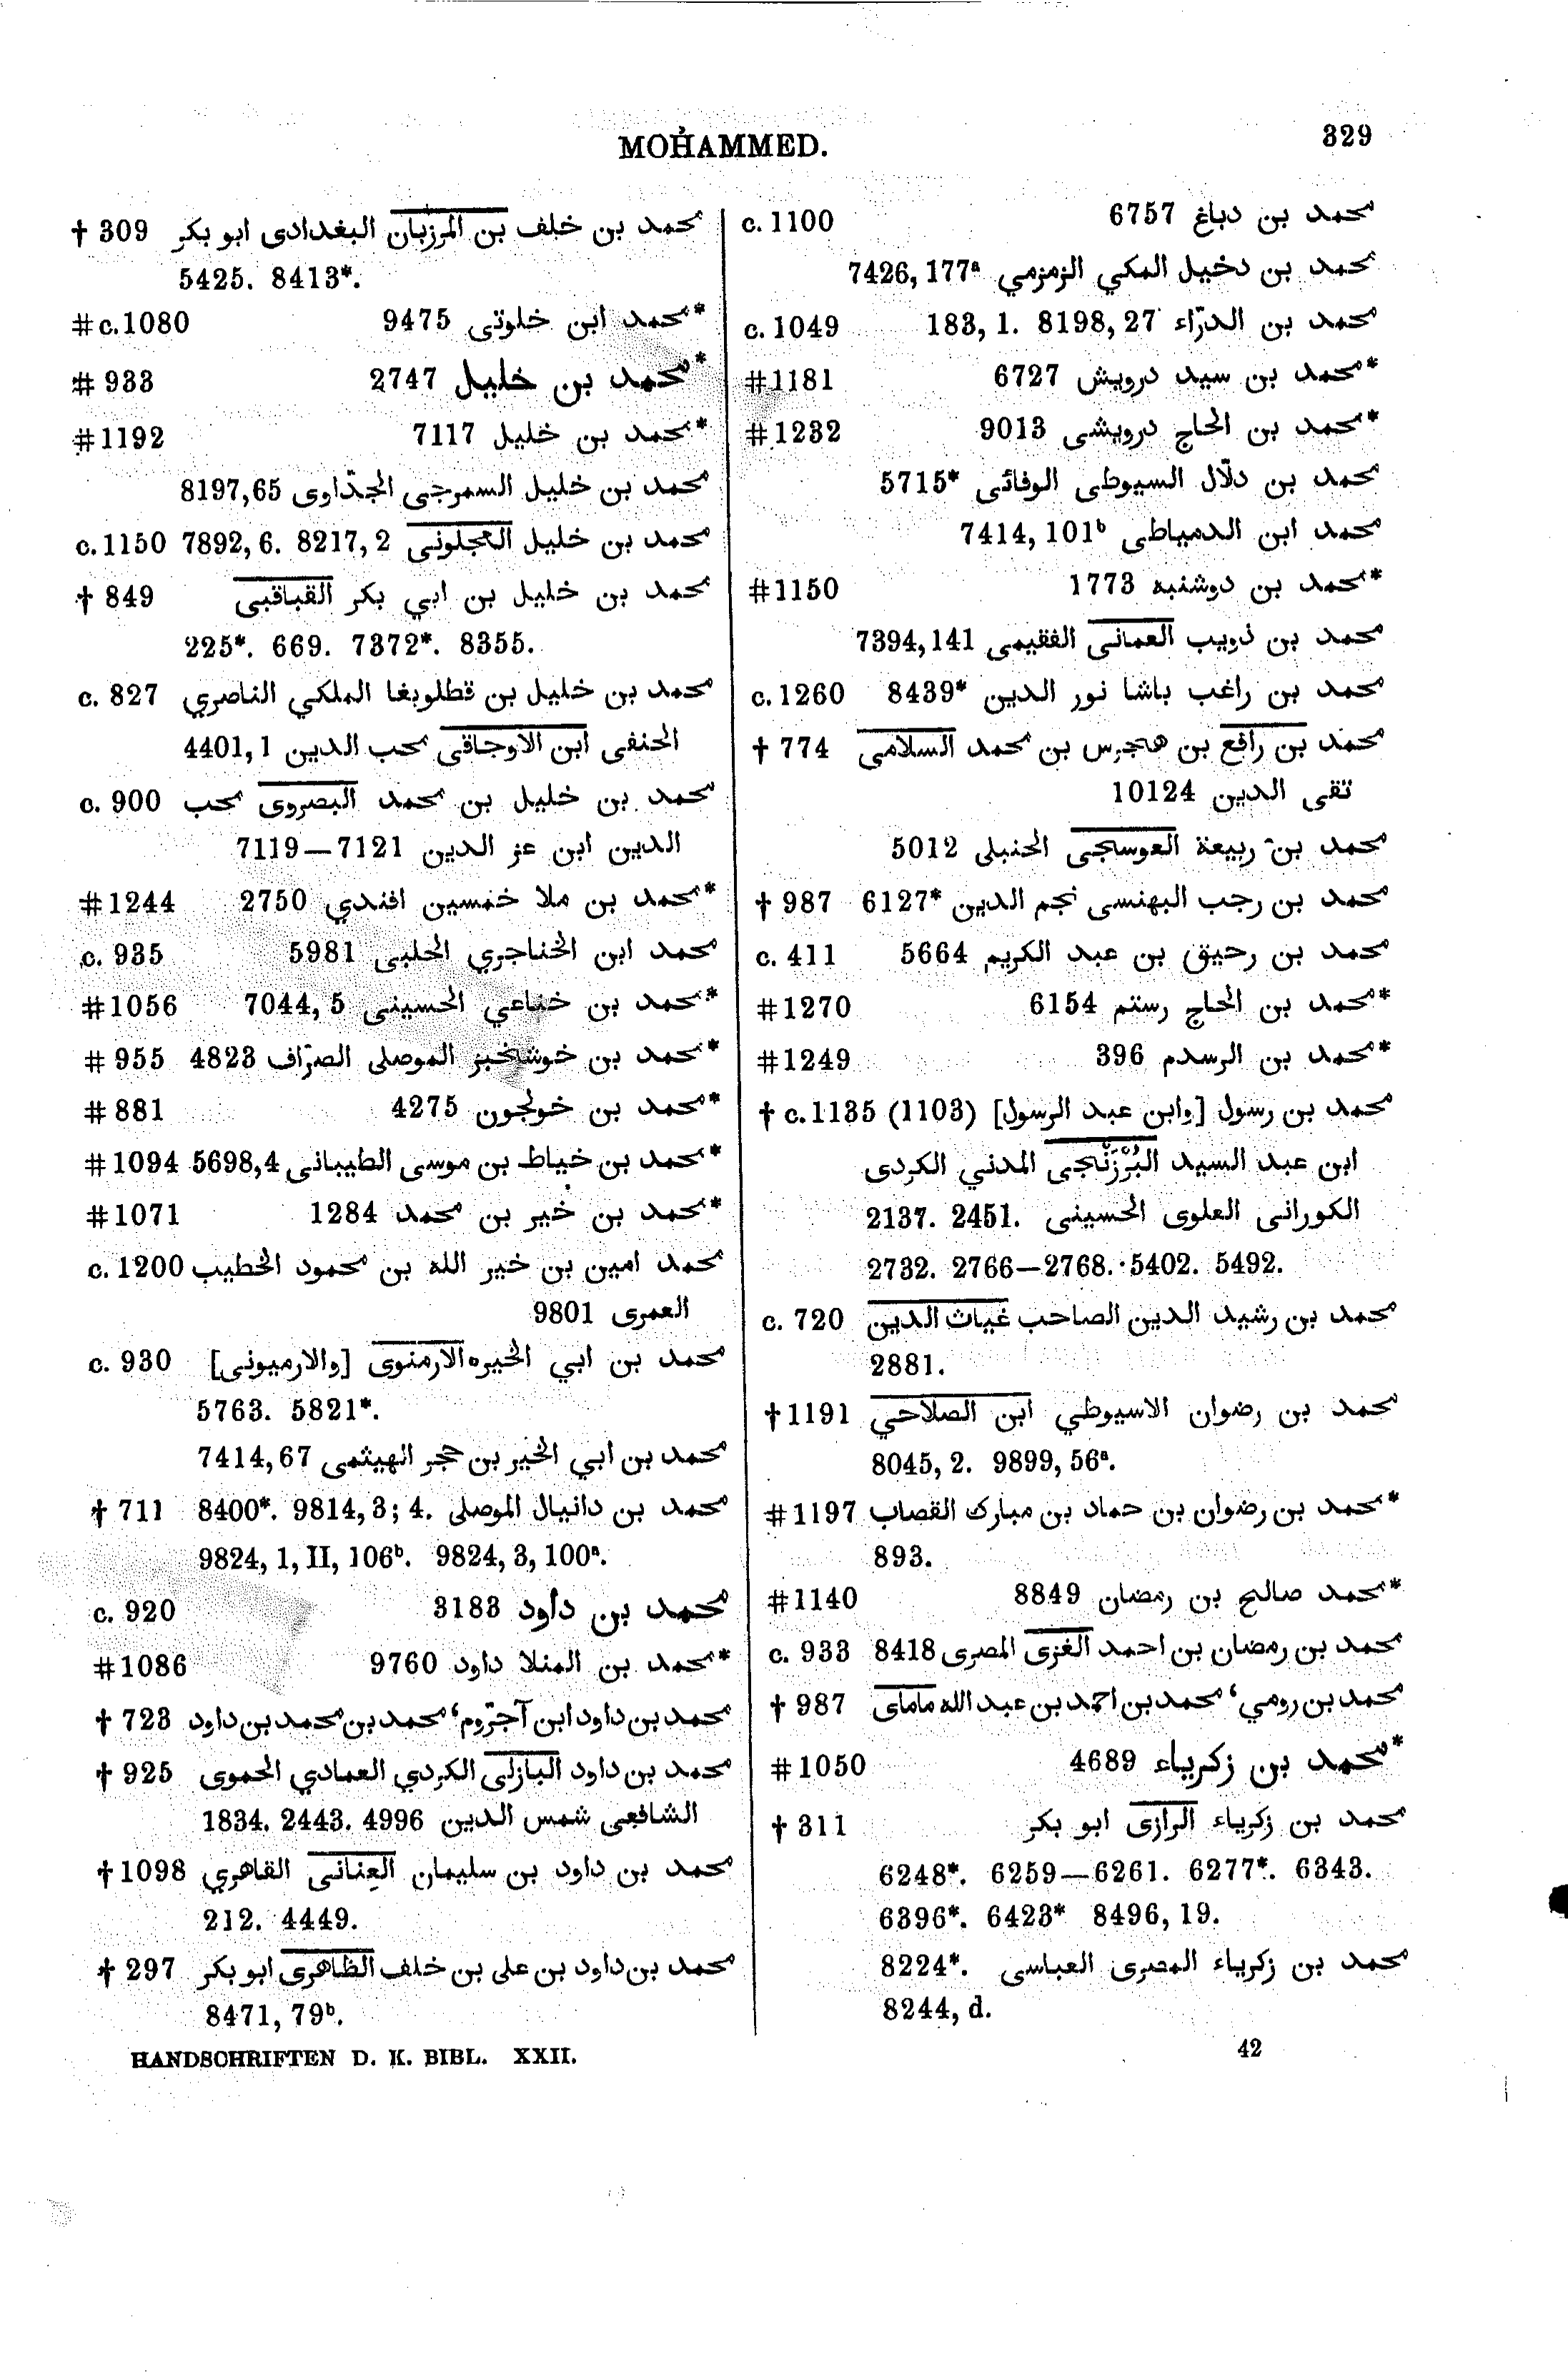 MOḢAMMED. 329
محمد بن خلف بن المرزبان البغدادى ابو بكر † 309
5425. 8413*.
*محمد ابن خلوتى 9475 #c.1080
*محمد بن خليل 2747 # 933
*محمد بن خليل 7117 #1192
محمد بن خليل السمرجى الجدّاوى 8197,65
محمد بن خليل العجلونى 7892, 6. 8217, 2 c.1150
محمد بن خليل بن ابي بكر القباقبى † 849
225*. 669. 7372*. 8355.
محمد بن خليل بن قطلوبغا الملكي الناصري c. 827
الحنفى ابن الاوجاقى محب الدين 4401, 1
محمد بن خليل بن محمد البصروى محب c. 900
الدين ابن عز الدين 7119—7121
*محمد بن ملا خمسين افندي 2750 #1244
محمد ابن الخناجري الحلبى 5981 c. 935
*محمد بن خناعي الحسينى 7044, 5 #1056
*محمد بن خوشخبز الموصلى الصرّاف 4823 # 955
*محمد بن خولجون 4275 # 881
*محمد بن خياط بن موسى الطيبانى 5698,4 #1094
*محمد بن خير بن محمد 1284 #1071
محمد امين بن خير الله بن محمود الخطيب c. 1200
العمرى 9801
محمد بن ابي الخيره الارمنوى [والارميونى] c. 930
5763. 5821*.
محمد بن ابي الخير بن حجر الهيثمى 7414, 67
محمد بن دانيال الموصلى 8400*. 9814, 3; 4. † 711
9824, 1, II, 106ᵇ. 9824, 3, 100ᵃ.
محمد بن داود 3183 c. 920
*محمد بن المنلا داود 9760 #1086
محمد بن داود ابن آجرّوم، محمد بن محمد بن داود † 723
محمد بن داود البازلى الكردي العمادي الحموى † 925
الشافعى شمس الدين 1834. 2443. 4996
محمد بن داود بن سليمان العنانى القاهري †1098
212. 4449.
محمد بن داود بن على بن خلف الظاهرى ابو بكر † 297
8471, 79ᵇ.
محمد بن دباغ 6757 c. 1100
محمد بن دخيل المكي الزمزمي 7426, 177ᵃ
محمد بن الدرّاء 183, 1. 8198, 27 c. 1049
*محمد بن سيد درويش 6727 #1181
*محمد بن الحاج درويشى 9013 #1232
محمد بن دلّال السيوطى الوفائى 5715*
محمد ابن الدمياطى 7414, 101ᵇ
*محمد بن دوشنبه 1773 #1150
محمد بن ذويب العمانى الفقيمى 7394,141
محمد بن راغب باشا نور الدين 8439* c. 1260
محمد بن رافع بن هجرس بن محمد السلامى † 774
تقى الدين 10124
محمد بن ربيعة العوسجى الحنبلى 5012
محمد بن رجب البهنسى نجم الدين 6127* † 987
محمد بن رحيق بن عبد الكريم 5664 c. 411
*محمد بن الحاج رستم 6154 #1270
*محمد بن الرسدم 396 #1249
محمد بن رسول [وابن عبد الرسول] (1103) † c.1135
ابن عبد السيد البُرْزَنْجى المدني الكردى
الكورانى العلوى الحسينى 2137. 2451.
2732. 2766—2768. 5402. 5492.
محمد بن رشيد الدين الصاحب غياث الدين c. 720
2881.
محمد بن رضوان الاسيوطي ابن الصلاحي †1191
8045, 2. 9899, 56ᵃ.
*محمد بن رضوان بن حماد بن مبارك القصاب #1197
893.
*محمد صالح بن رمضان 8849 #1140
محمد بن رمضان بن احمد الغزى المصرى 8418 c. 933
محمد بن رومي، محمد بن احمد بن عبد الله ماماى † 987
*محمد بن زكرياء 4689 #1050
محمد بن زكرياء الرازى ابو بكر † 311
6248*. 6259—6261. 6277*. 6343.
6396*. 6423* 8496, 19.
محمد بن زكرياء المصرى العباسى 8224*.
8244, d.
HANDSCHRIFTEN D. K. BIBL. XXII. 42